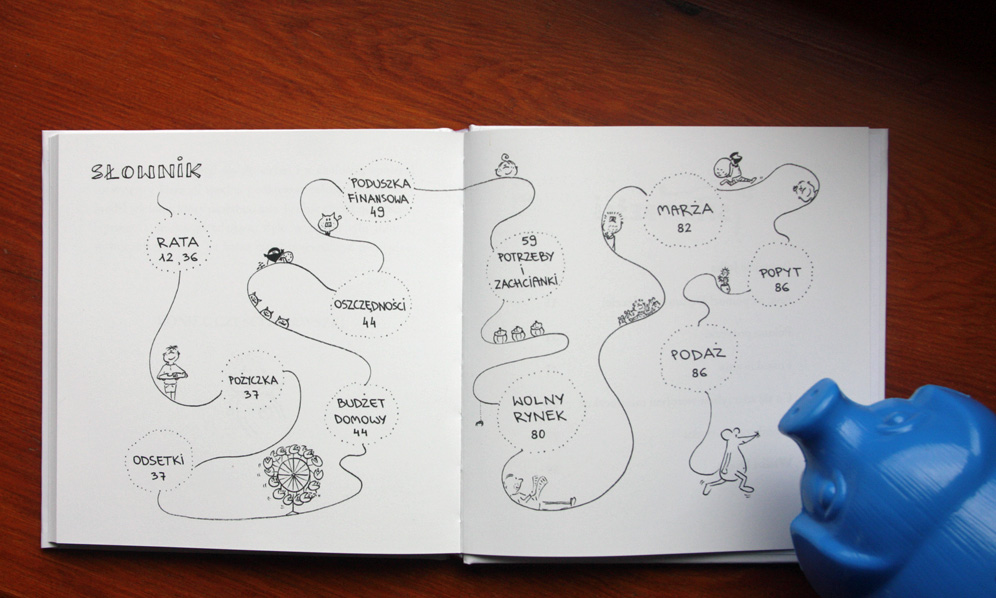 SŁOWNIK
RATA
12, 36
POŻYCZKA
37
ODSETKI
37
BUDŻET
DOMOWY
44
OSZCZĘDNOŚCI
44
PODUSZKA
FINANSOWA
49
59
POTRZEBY
i
ZACHCIANKI
WOLNY
RYNEK
80
MARŻA
82
POPYT
86
PODAŻ
86